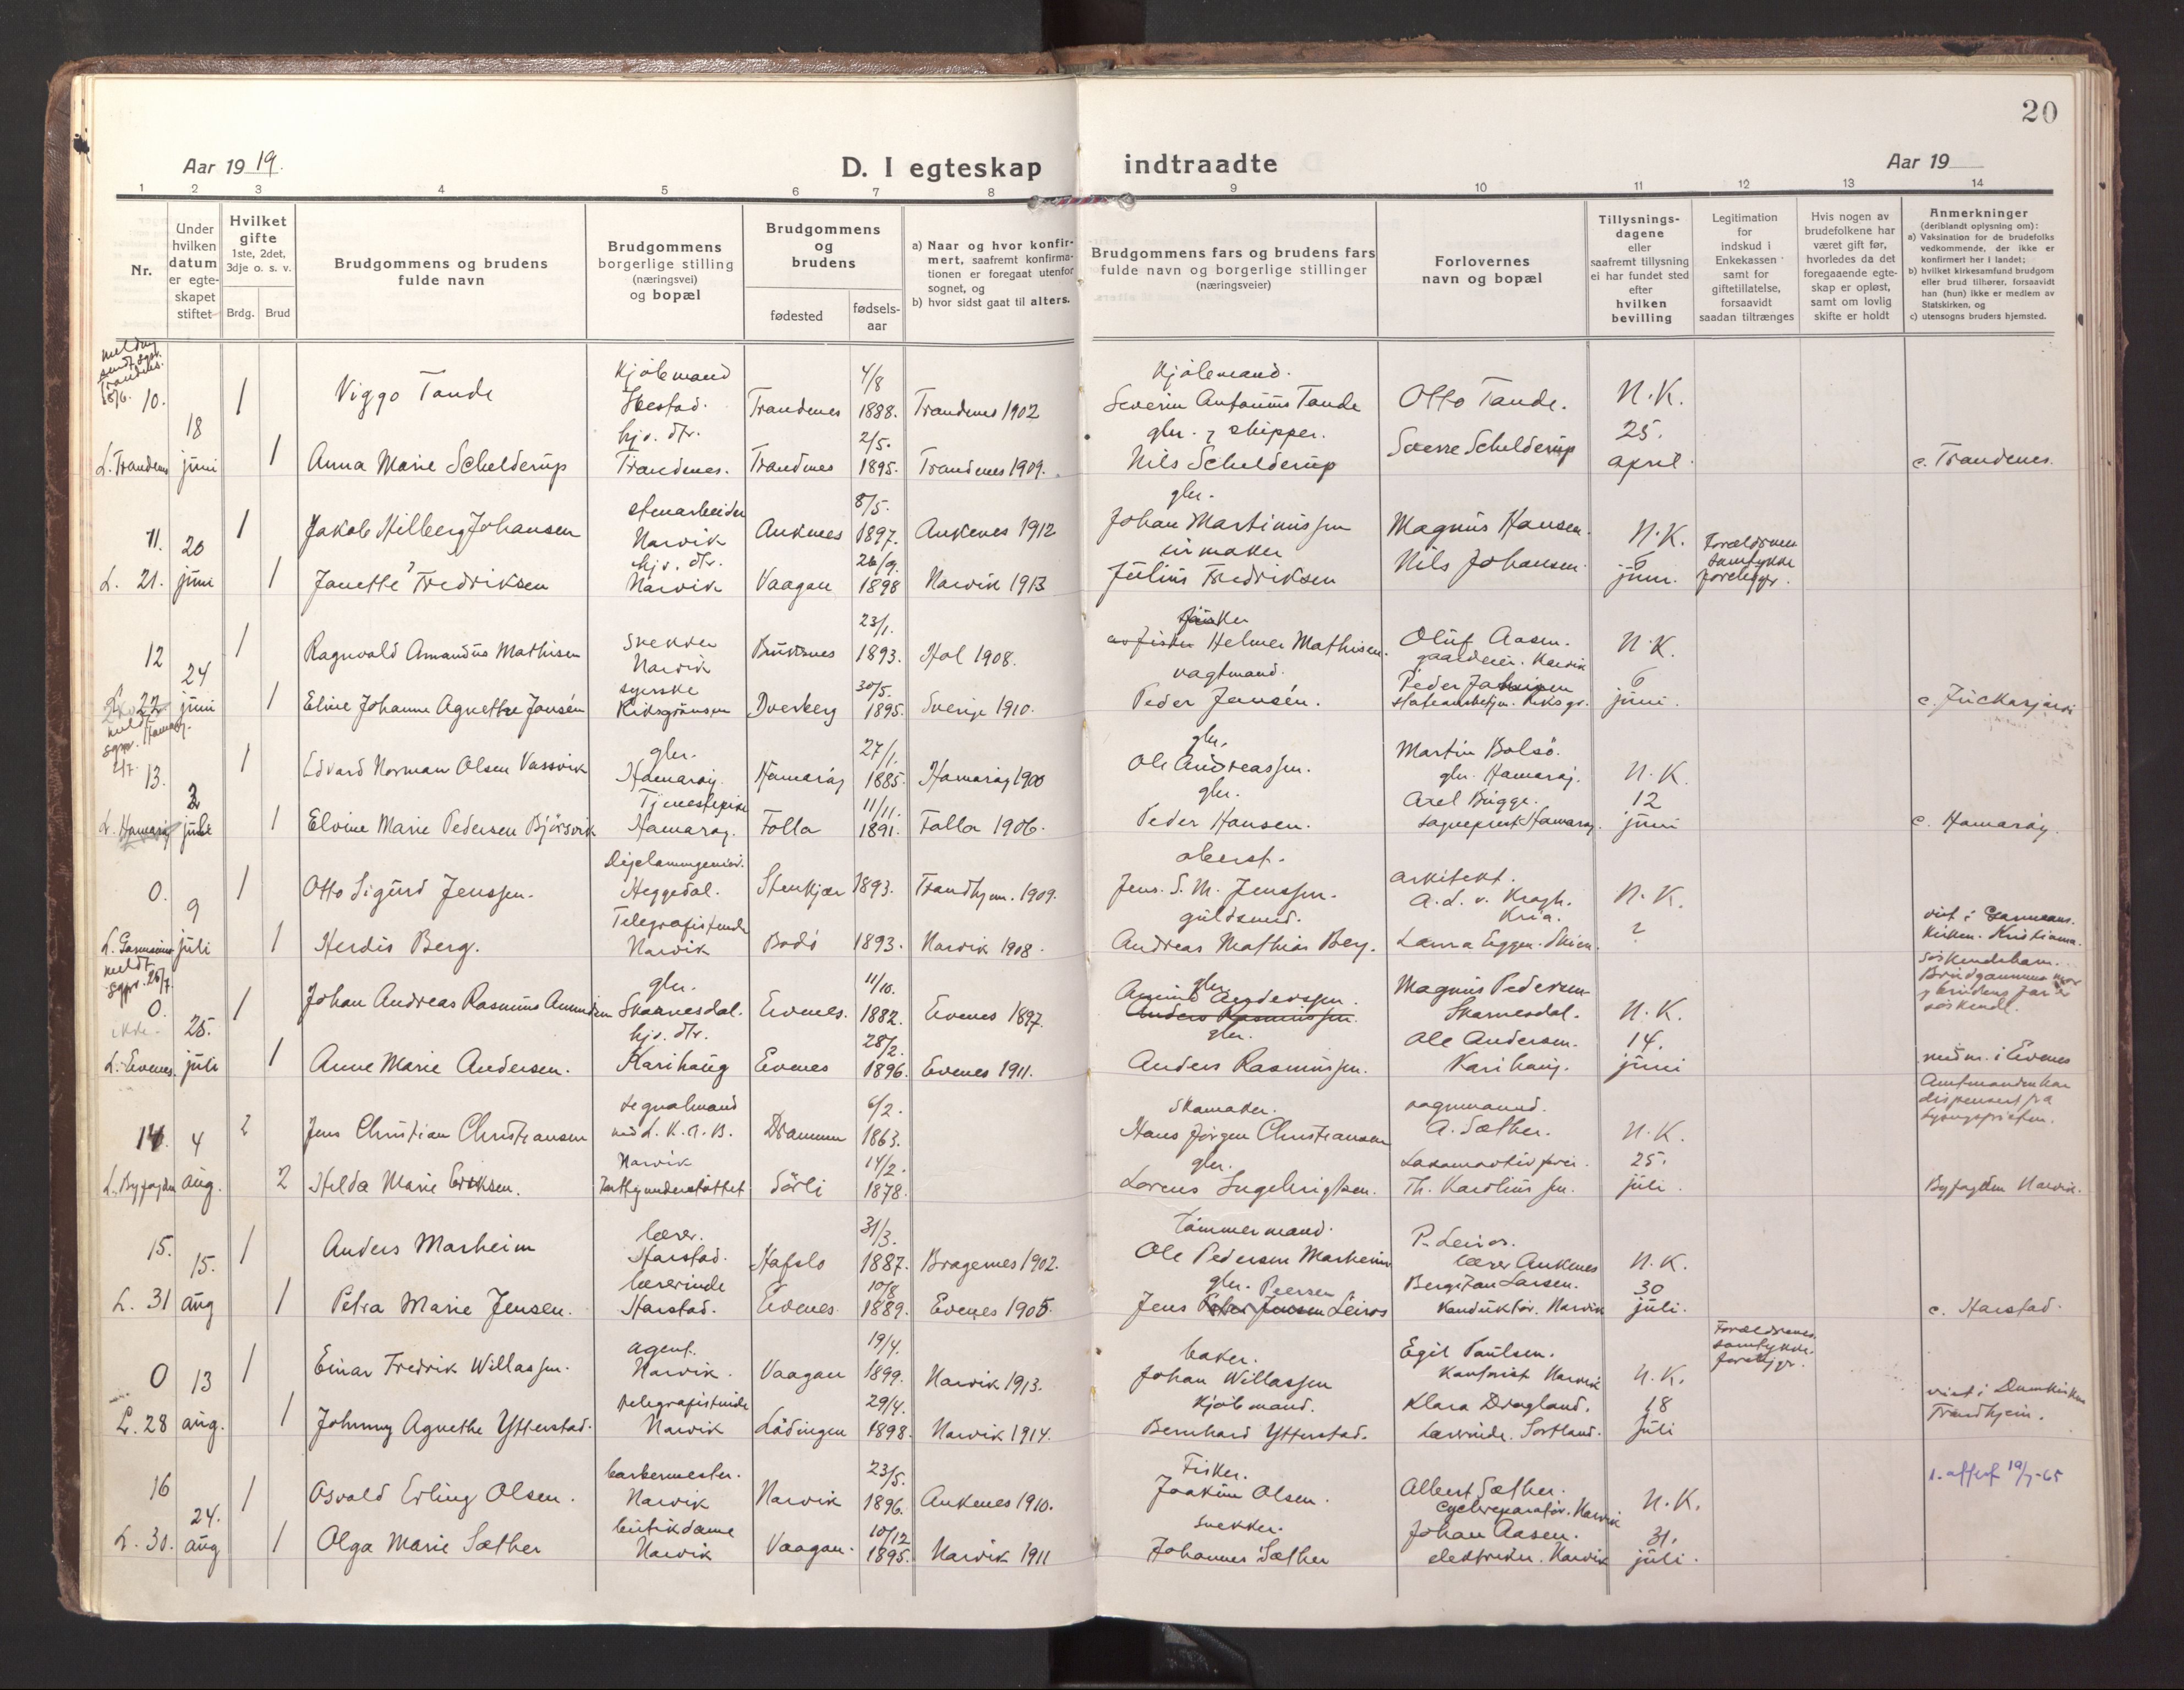 20
Aar 1919.
D. I egteskap indtraadte
Aar 19
1 2 3 4 5 6 7 8 9 10 11 12 13 14
Nr.
Under hvilken datum er egte-skapet stiftet
Hvilket gifte
1ste, 2det, 3dje o. s. v.
Brdg. Brud
Brudgommens og brudens
fulde navn
Brudgommens
borgerlige stilling
(næringsvei)
og bopæl
Brudgommens
og
brudens
fødested
fødsels-
aar
a) Naar og hvor konfir-
mert, saafremt konfirma-
tionen er foregaat utenfor
sognet, og
b) hvor sidst gaat til alters.
Brudgommens fars og brudens fars
fulde navn og borgerlige stillinger
(næringsveier)
Forlovernes
navn og bopæl
Tillysnings-
dagene
eller
saafremt tillysning
ei har fundet sted
efter
hvilken
bevilling
Legitimation
for
indskud i
Enkekassen
samt for
giftetillatelse,
forsaavidt
saadan tiltrænges
Hvis nogen av
brudefolkene har
været gift før,
hvorledes da det
foregaaende egte-
skap er opløst,
samt om lovlig
skifte er holdt
Anmerkninger
(deriblandt oplysning om):
a) Vaksination for de brudefolks
vedkommende, der ikke er
konfirmert her i landet;
b) hvilket kirkesamfund brudgom
eller brud tilhører, forsaavidt
han (hun) ikke er medlem av
Statskirken, og
c) utensogns bruders hjemsted.
10. 1 Viggo Tande Kjöbmand Trandenes 4/8 1888. Trandenes 1902 Kjöbmand. Severin Antonius Tande Otto Tande. N.K.
L. Trandenes 18 juni 1 Anna Marie Schelderup hjv. dtr. Trandenes. Trandenes 2/5. 1895. Trandenes 1909. gbr. & skipper. Nils Schelderup Sverre Schelderup 25. april c. Trandenes.
11. 1 Jakob Hilberg Johansen stenarbeider Narvik Ankenes 8/5. 1897. Ankenes 1912 gbr. Johan Martinussen Magnus Hansen. N.K. Forældrenes samtykke foreligger.
L. 21. 20 juni 1 Janette Fredriksen hjv. dtr. Narvik Vaagan 26/9. 1898 Narvik 1913 urmaker Julius Fredriksen Nils Johansen. 6 juni.
12 1 Ragnvald Amandus Mathisen Snekker Narvik Buksnes 23/1. 1893. Hol 1908. fisker Helmer Mathisen. Oluf Aasen. gaardeier. Narvik N.K.
22 24 juni 1 Eline Johanne Agnethe Jansén syerske Riksgrænsen Dverberg 30/5. 1895. Sverige 1910. vagtmand. Peder Jansén. 6 juni. c. Juckasjärvi
13. 1 Edvard Norman Olsen Vassvik gbr. Hamarøy. Hamarøy 27/1. 1885. Hamarøy 1900 gbr. Ole Andreassen. Martin Bolsö. gbr. Hamarøj. N.K.
L. Hamarøj 2 juli 1 Elvine Marie Pedersen Björsvik Tjenestepike Hamarøy. Folla 11/11. 1891. Folla 1906. gbr. Peder Hansen. Axel Bugge. sogneprest Hamarøy. 12 juni c. Hamarøy.
0. 1 Otto Sigurd Jenssen. Diplomingeniør. Heggedal. Stenkjær 1893. Trondhjem. 1909. oberst. Jens. S. M. Jenssen. arkitekt. A. L. v. Krogh. Kria. N.K.
9 juli 1 Herdis Berg. Telegrafistinde Narvik Bodö 1893. Narvik 1908. guldsmed. Andreas Mathias Berg. Laura Eggen. Skien. ? viet i Garnisons. kirken. Kristiania.
meldt sgpr. 26/7
0. 1 Johan Andreas Rasmus Amundsen gbr. Skaanesdal. Evenes. 11/10. 1882. Evenes 1897. gbr. Amund Anderssen. Anders Rasmussen. Magnus Pedersen Skarnesdal. N.K. Söskendebarn. Brudgommens mor & brudens far er söskende.
L. Evenes. 25. juli 1 Anne Marie Andersen. hjv. dtr. Karihaug Evenes 28/2. 1896. Evenes 1911. gbr. Anders Rasmussen. Ole Andersen. Karihaug. 14. juni i Evenes
14. 2 Jens Christian Christiansen signalmand ved L. K. A. B. Drammen 6/2. 1863. Skomaker. Hans Jörgen Christiansen vognmand. A. Sæther. N.K. Amtmanden har dispensert fra lysningsfristen.
L. Byfogden 4 aug. 2 Hilda Marie Eriksen. Narvik Sörli 14/2. 1878. gbr. Lorens Ingebrigtsen. Th. Karoliussen. 25. juli. Byfogden Narvik.
15. 1 Anders Marheim lærer. Harstad. Hafslo 31/3. 1887. Bragernes 1902. Tömmermand. Ole Pedersen Marheim P. Leiros. lærer Ankenes N.K.
L. 31 15. aug 1 Petra Marie Jensen. lærerinde Harstad. Evenes. 10/8 1889. Evenes 1905. gbr. Peersen Jens Peder Jensen Leiros Bergitan Larsen. Konduktör. Narvik 30 juli. c. Harstad.
0 1 Einar Fredrik Willassen. agent. Narvik. Vaagan 19/4. 1899. Narvik 1913. baker. Johan Willassen Egil Paulsen. Kontorist Narvik N.K. Forældrenes samtykke. foreligger.
L. 28 13 aug. 1 Johnny Agnethe Ytterstad. telegrafistinde Narvik Lödingen 29/4. 1898. Narvik 1914. Kjöbmand. Bernhard Ytterstad. Klara Dragland. Lærerinde. Sortland. 18 juli viet i Domkirken Trondhjem.
16 1 Osvald Erling Olsen. barbermester. Narvik Narvik 23/5. 1896. Ankenes 1910. Fisker. Joakim Olsen. Albert Sæther. Cyclereparatör. Narvik N.K. 1. attest 19/7-65
L. 30. 24. aug 1 Olga Marie Sæther butikdame Narvik Vaagan. 10/12 1895. Narvik 1911 Snekker. Johannes Sæther Johan Aasen. elektriker. Narvik 31. juli.